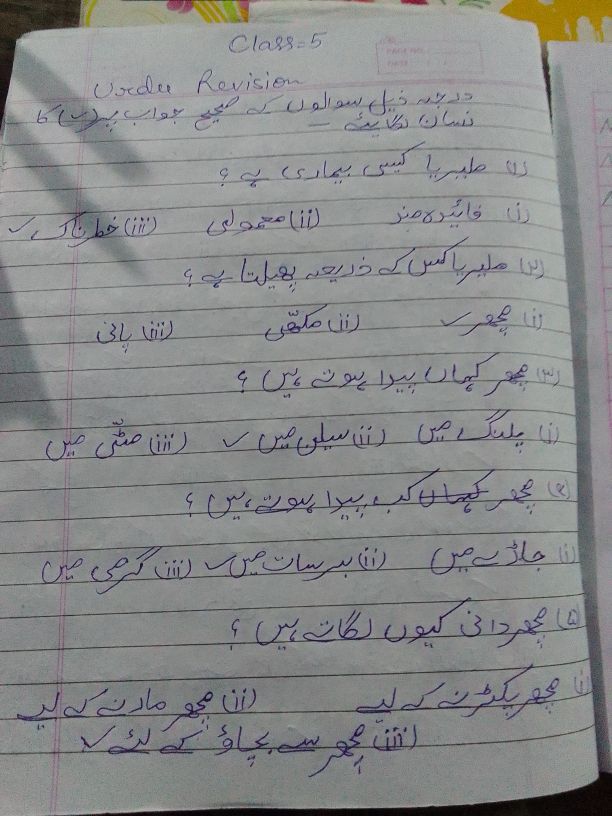 Class=5
Urdu Revision
درجہ ذیل سوالوں کے صحیح جواب پر (✓) کا
نشان لگایئے
(۱) ملیریا کیسی بیماری ہے ؟
(i) فائیدہ مند (ii) معمولی (iii) خطرناک ✓
(۲) ملیریا کس کے ذریعہ پھیلتا ہے ؟
(i) مچھر ✓ (ii) مکھّی (iii) پانی
(۳) مچھر کہاں پیدا ہوتے ہیں ؟
(i) پلنگ میں (ii) سیلن میں ✓ (iii) مٹّی میں
(۴) مچھر کہاں کب پیدا ہوتے ہیں ؟
(i) جاڑے میں (ii) برسات میں ✓ (iii) گرمی میں
(۵) مچھردانی کیوں لگاتے ہیں ؟
(i) مچھر پکڑنے کے لیے (ii) مچھر مارنے کے لیے
(iii) مچھر سے بچاؤ کے لئے ✓